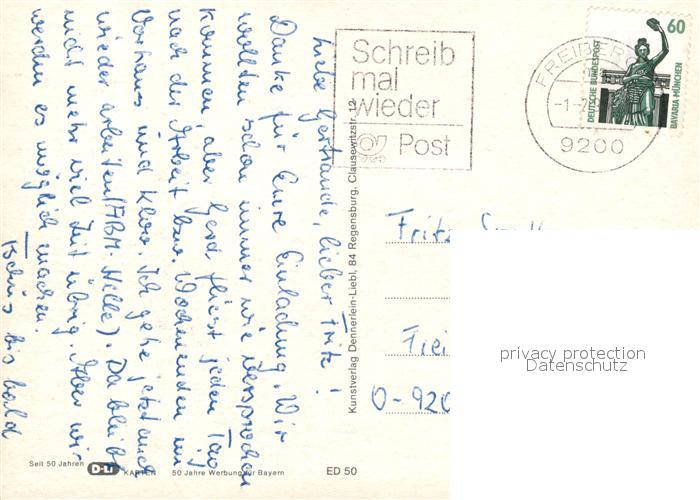 Liebe Gertraude, lieber Fritz!
Danke für Eure Einladung. Wir
wollten schon immer wie versprochen
kommen, aber Gerd fliest jeden Tag
nach der Arbeit bzw. Wochenenden im
Vorhaus und Klos. Ich gehe jetzt auch
wieder arbeiten (ABM-Stelle). Da bleibt
nicht mehr viel Zeit übrig. Aber wir
werden es möglich machen.
Tschüs bis bald
Schreib
mal
wieder
Post
FREIBERG
-1-7
9200
60
DEUTSCHE BUNDESPOST
BAVARIA·MÜNCHEN
Kunstverlag Dennerlein-Liebl, 84 Regensburg, Clausewitzstr. 12
Fritz
Frei
O-920
privacy protection
Datenschutz
Seit 50 Jahren D-Li KARTEN 50 Jahre Werbung für Bayern
ED 50